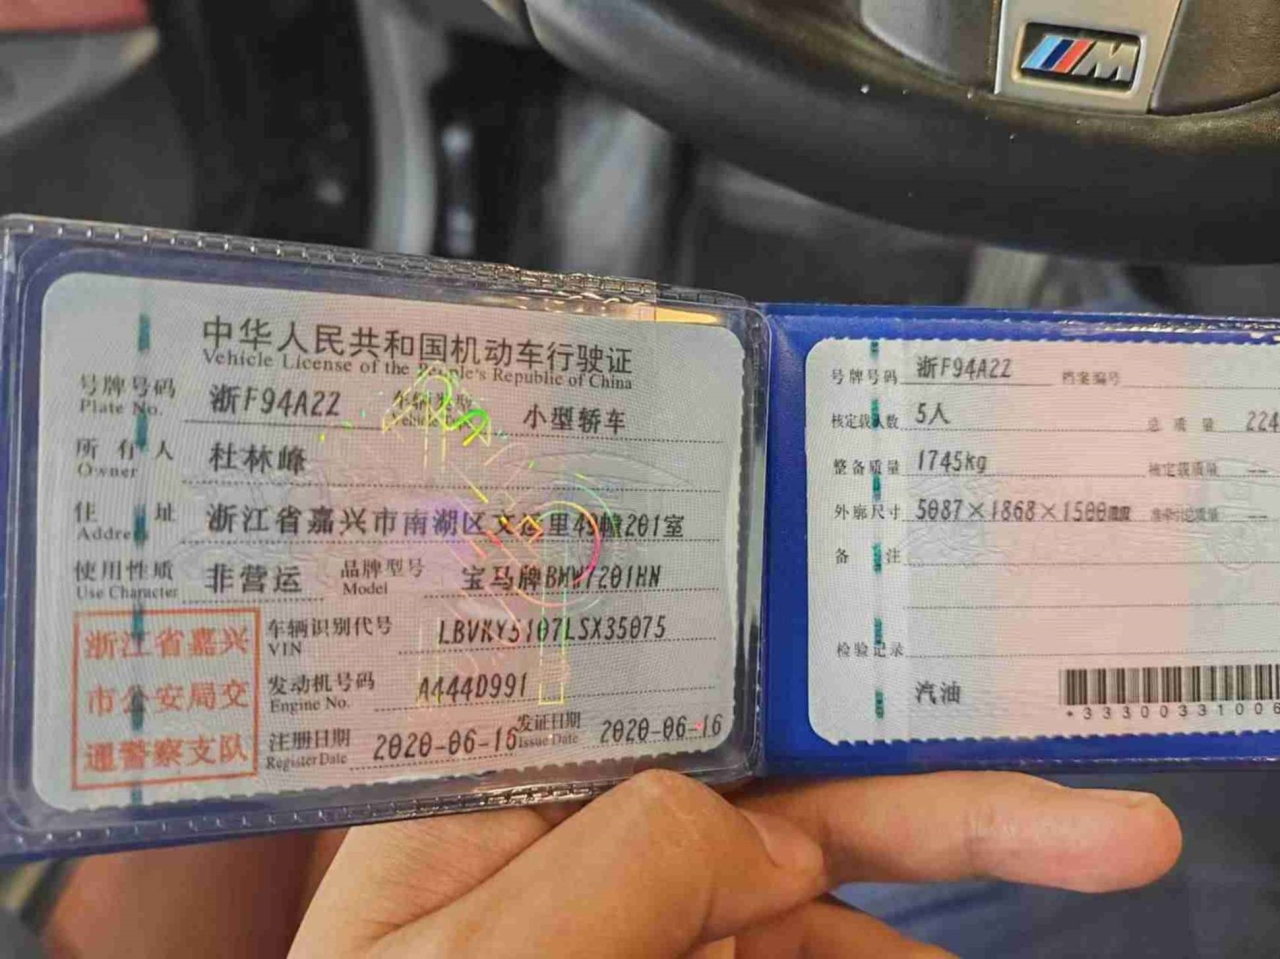 M
中华人民共和国机动车行驶证
Vehicle License of the People's Republic of China
号牌号码 浙F94A22 车辆类型 小型轿车
Plate No. Vehicle
所有人 杜林峰
Owner
住址 浙江省嘉兴市南湖区文 里4 幢201室
Address
使用性质 非营运 品牌型号 宝马牌BMW7201HN
Use Character Model
浙江省嘉兴
市公安局交
通警察支队
车辆识别代号
VIN
发动机号码 A444D991
Engine No.
注册日期 2020-06-16 发证日期 2020-06-16
Register Date Issue Date
号牌号码 浙F94A22 档案编号
核定载人数 5人 总质量 224
整备质量 1745kg 核定载质量 --
外廓尺寸 5087×1868×1500mm 准牵引总质量 --
备注
检验记录
汽油
*3330033 1006